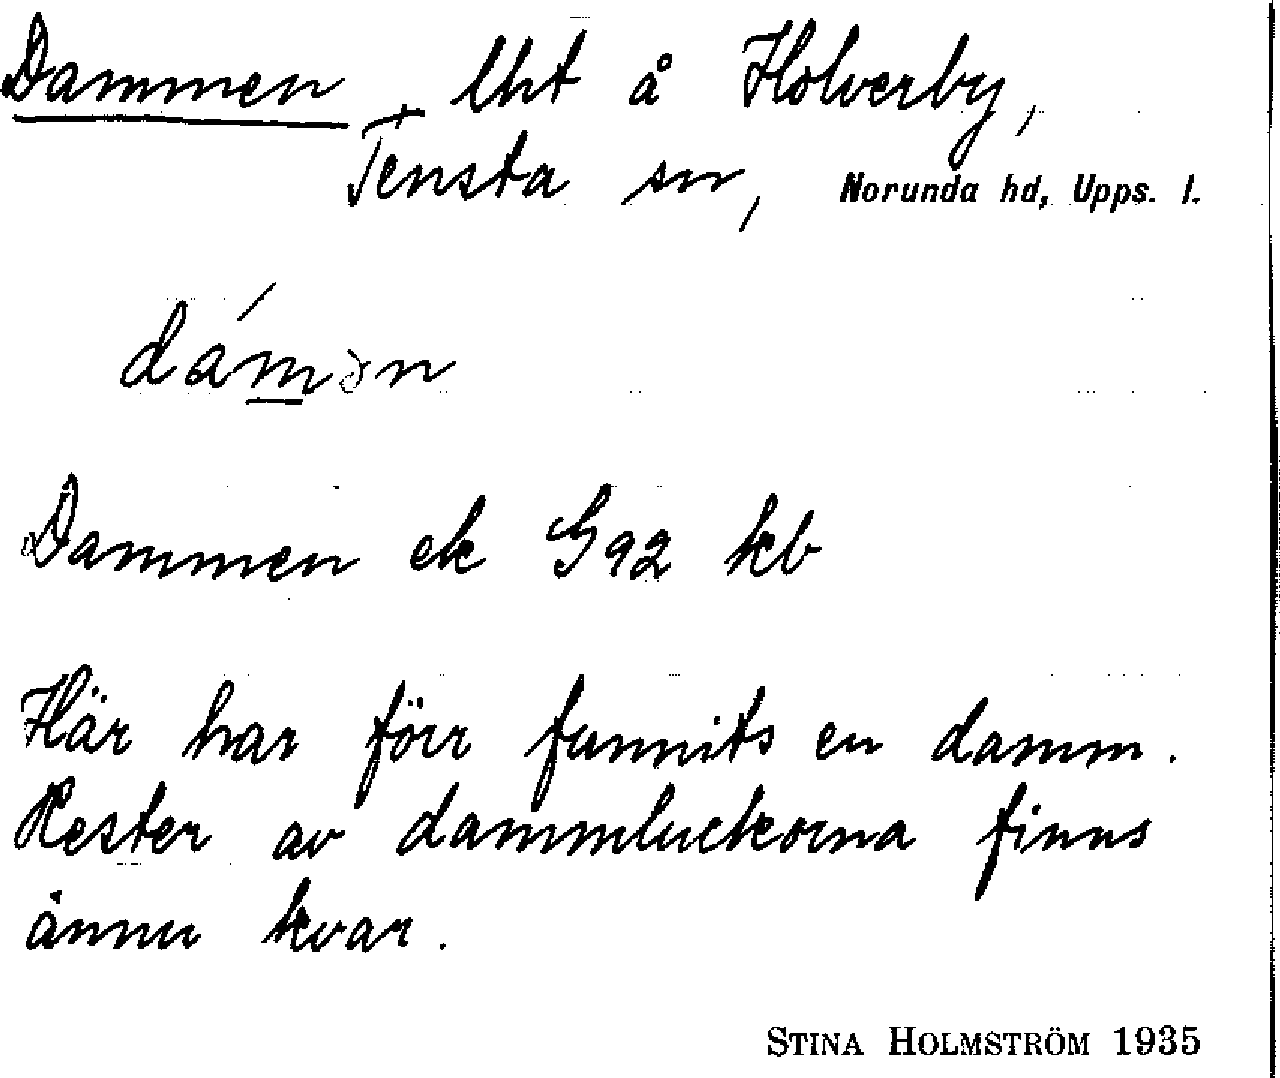 Dammen, lht å Holverby,
Tensta sn, Norunda hd, Upps. l.
dám̲ən
Dammen ek G92 kb
Här har förr funnits en damm.
Rester av dammluckorna finns
ännu kvar.
STINA HOLMSTRÖM 1935